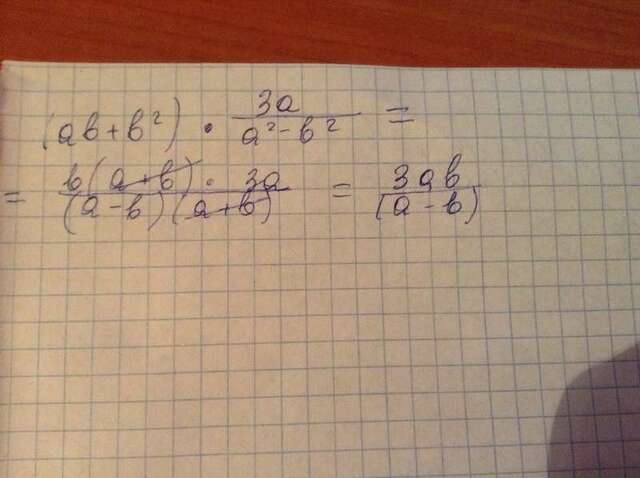 (ab+b²) · 3a/(a²-b²) =
= b(a+b) · 3a/((a-b)(a+b)) = 3ab/(a-b)